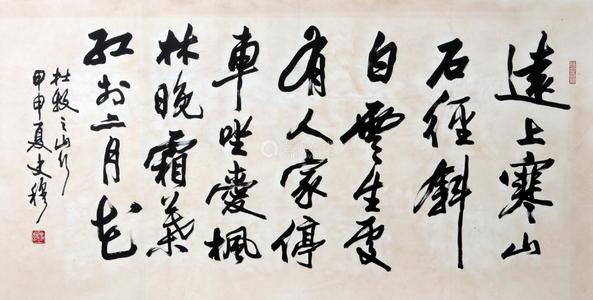 遠上寒山
石徑斜
白雲生處
有人家停
車坐愛楓
林晚霜葉
紅於二月花
杜牧之山行
甲申夏史穆